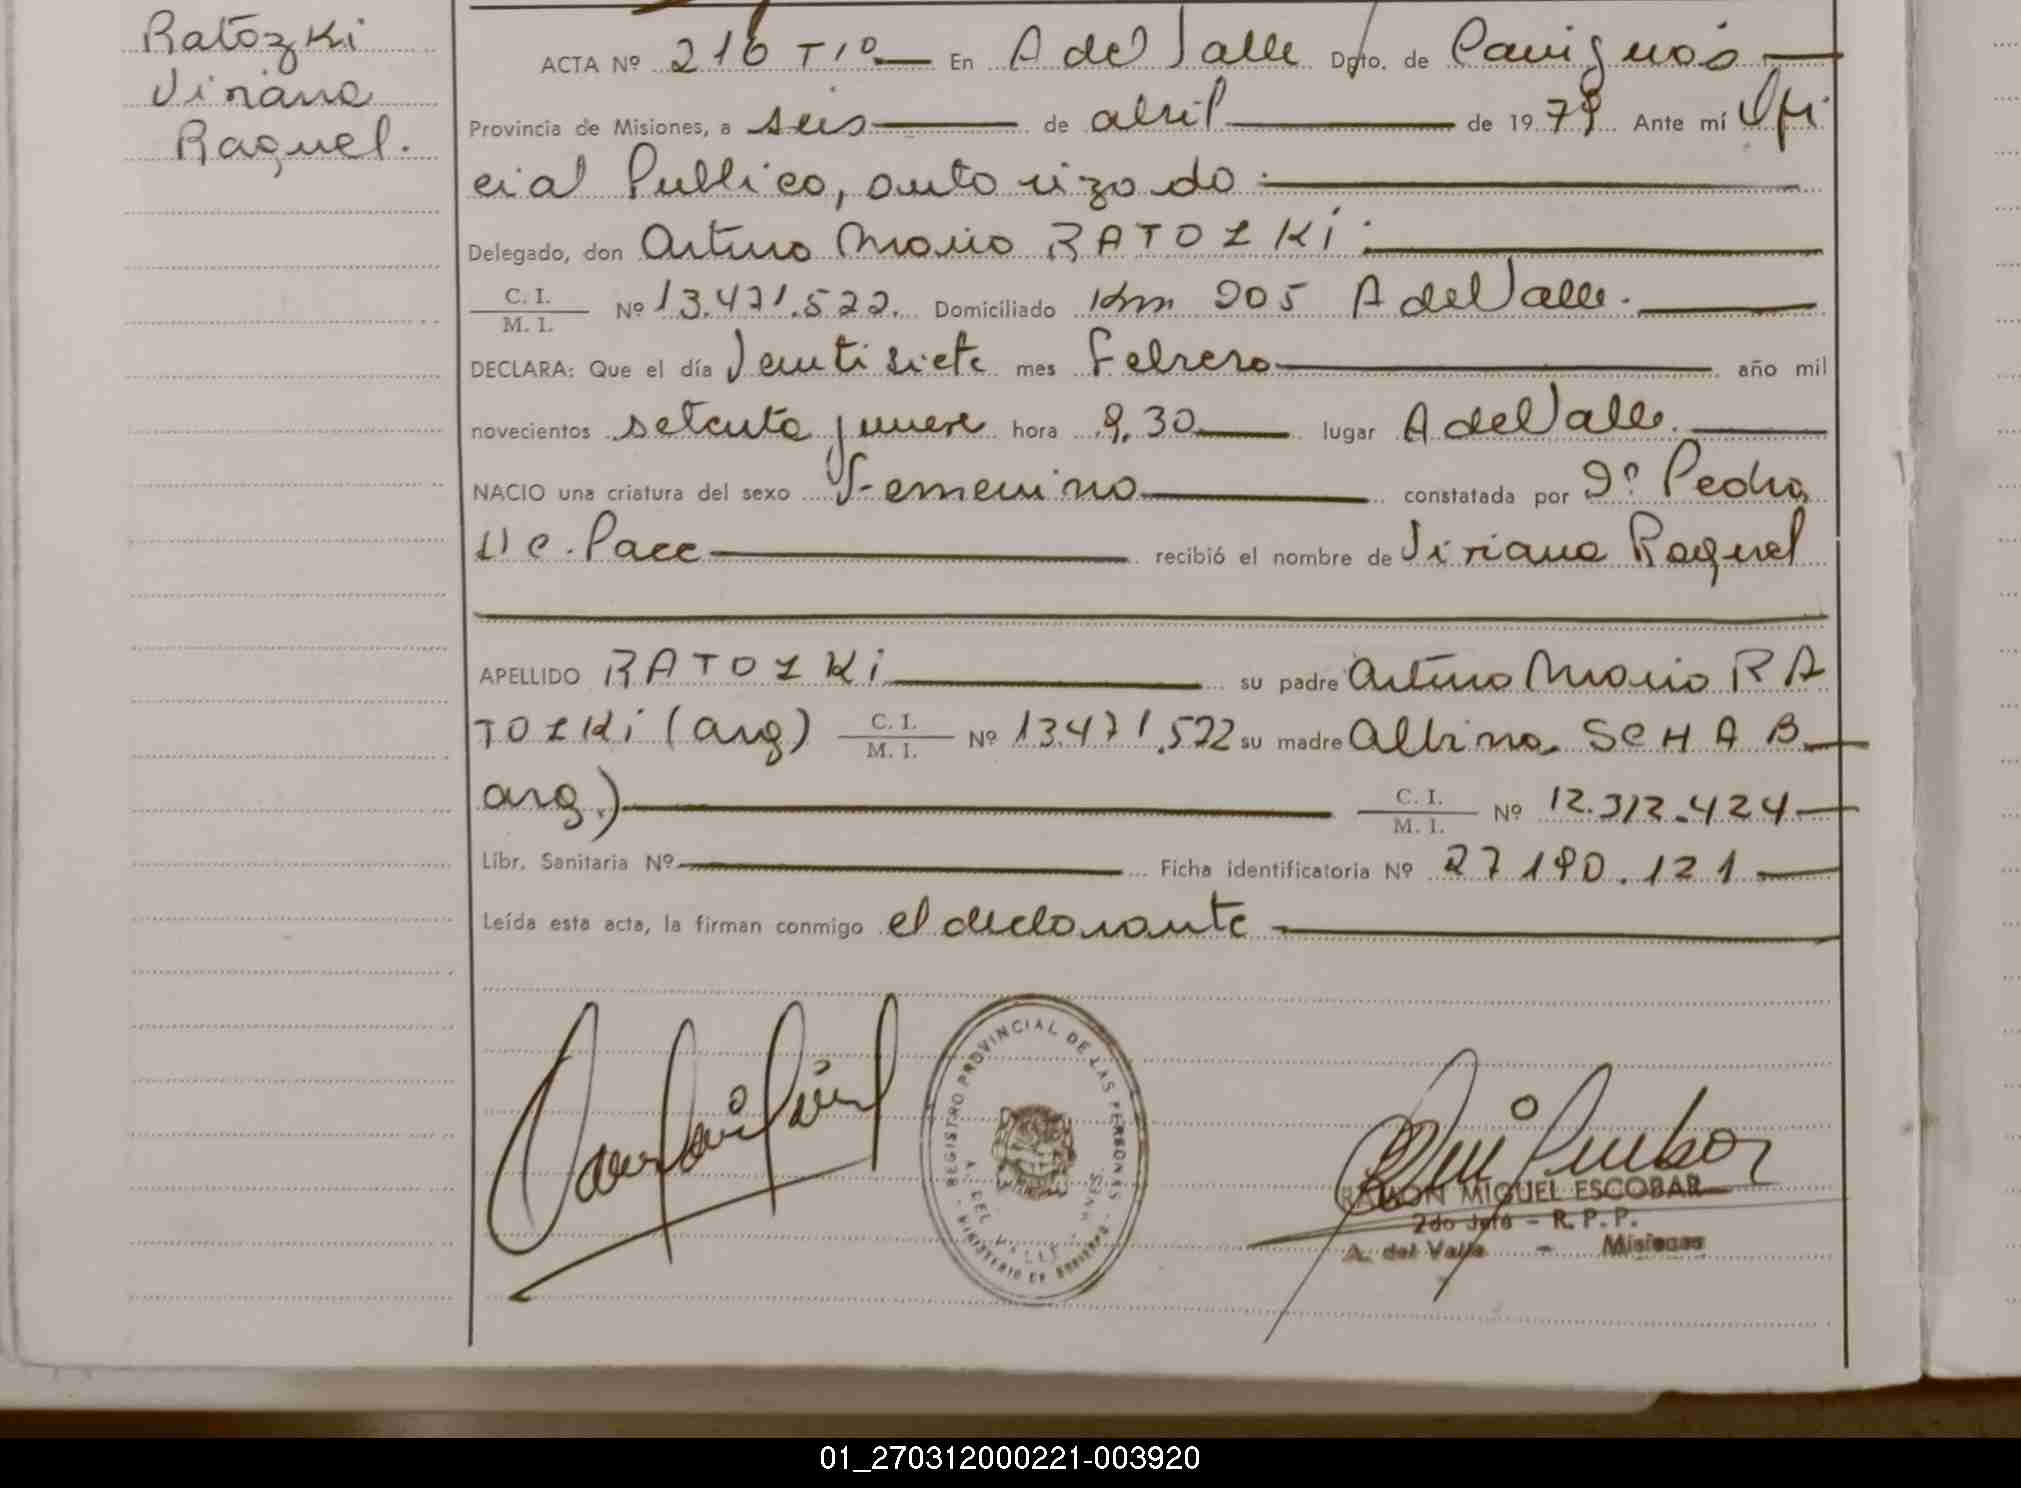 Ratozki
Viviana
Raquel.
ACTA Nº 216 Tº En A del Valle Dpto. de Cainguás
Provincia de Misiones, a seis de abril de 1979 Ante mí Ofi
cial Publico, autorizado
Delegado, don Arturo Mario RATOZKi
C. I.
M. I. Nº 13.471.522. Domiciliado Km 205 A del Valle.
DECLARA: Que el día Veintisiete mes Febrero año mil
novecientos setenta y nueve hora 9,30 lugar A del Valle.
NACIO una criatura del sexo Femenino constatada por Dº Pedro
Pace recibió el nombre de Viviana Raquel
APELLIDO RATOZKi su padre Arturo Mario RA
TOZKi (arg) C. I.
M. I. Nº 13.471.522 su madre Albina SCHAB
arg.) C. I.
M. I. Nº 12.312.424
Libr. Sanitaria Nº Ficha identificatoria Nº 27190.121
Leída esta acta, la firman conmigo el declarante
REGISTRO PROVINCIAL DE LAS PERSONAS
A. DEL VALLE - MNES.
MINISTERIO DE GOBIERNO
RAMON MIGUEL ESCOBAR
2do Jefe - R. P. P.
A. del Valle - Misiones
01_270312000221-003920